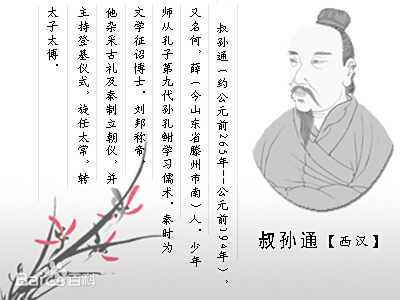 叔孙通（约公元前263年--公元前194年），
又名何，薛（今山东省滕州市南）人。少年
师从孔子第九代孙孔鲋学习儒术。秦时为
文学征诏博士。刘邦称帝
他杂采古礼及秦制立朝仪，并
主持登基仪式，旋任太常，转
太子太傅。
叔孙通【西汉】
Baidu百科